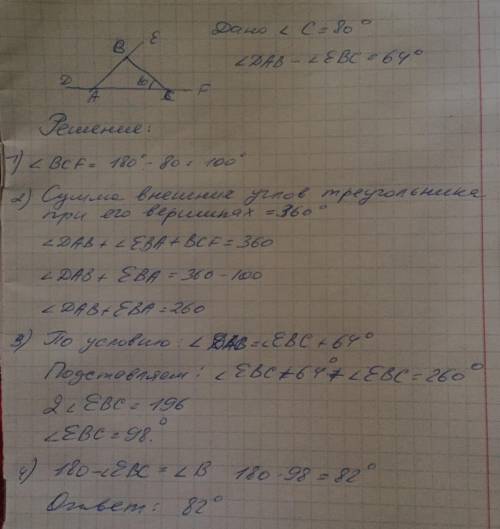 Дано ∠ C = 80°
∠DAB - ∠EBC = 64°
B E
D A C F
Решение:
1) ∠BCF = 180° - 80 = 100°
2) Сумма внешние углов треугольника
при его вершинах = 360°
∠DAB + ∠EBA + BCF = 360
∠DAB + EBA = 360 - 100
∠DAB + EBA = 260
3) По условию: ∠DAB = ∠EBC + 64°
Подставляем: ∠EBC + 64° + ∠EBC = 260°
2 ∠EBC = 196
∠EBC = 98°.
4) 180 - ∠EBC = ∠B 180 - 98 = 82°
Ответ: 82°